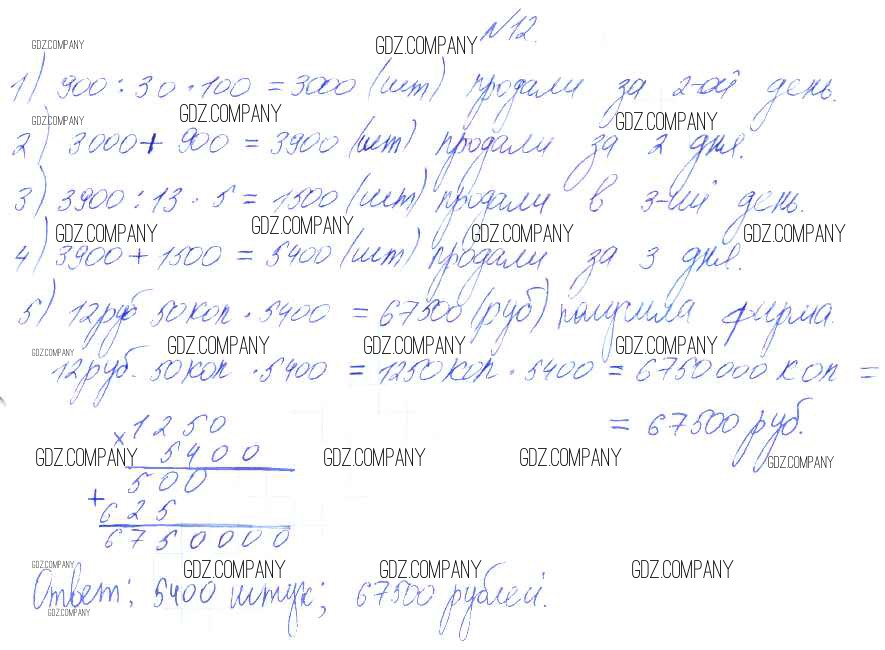 GDZ.COMPANY GDZ.COMPANY №12.
1) 900 : 30 · 100 = 3000 (шт) продали за 2-ой день.
GDZ.COMPANY GDZ.COMPANY GDZ.COMPANY
2) 3000 + 900 = 3900 (шт) продали за 2 дня.
3) 3900 : 13 · 5 = 1500 (шт) продали в 3-ий день.
GDZ.COMPANY GDZ.COMPANY GDZ.COMPANY GDZ.COMPANY
4) 3900 + 1500 = 5400 (шт) продали за 3 дня.
5) 12руб 50коп · 5400 = 67500 (руб) получила фирма.
GDZ.COMPANY GDZ.COMPANY GDZ.COMPANY GDZ.COMPANY
12руб. 50коп · 5400 = 1250коп · 5400 = 6750000 коп =
= 67500 руб.
× 1250
5400
GDZ.COMPANY GDZ.COMPANY GDZ.COMPANY GDZ.COMPANY
500
+
625
6750000
GDZ.COMPANY GDZ.COMPANY GDZ.COMPANY GDZ.COMPANY
Ответ: 5400 штук; 67500 рублей.
GDZ.COMPANY